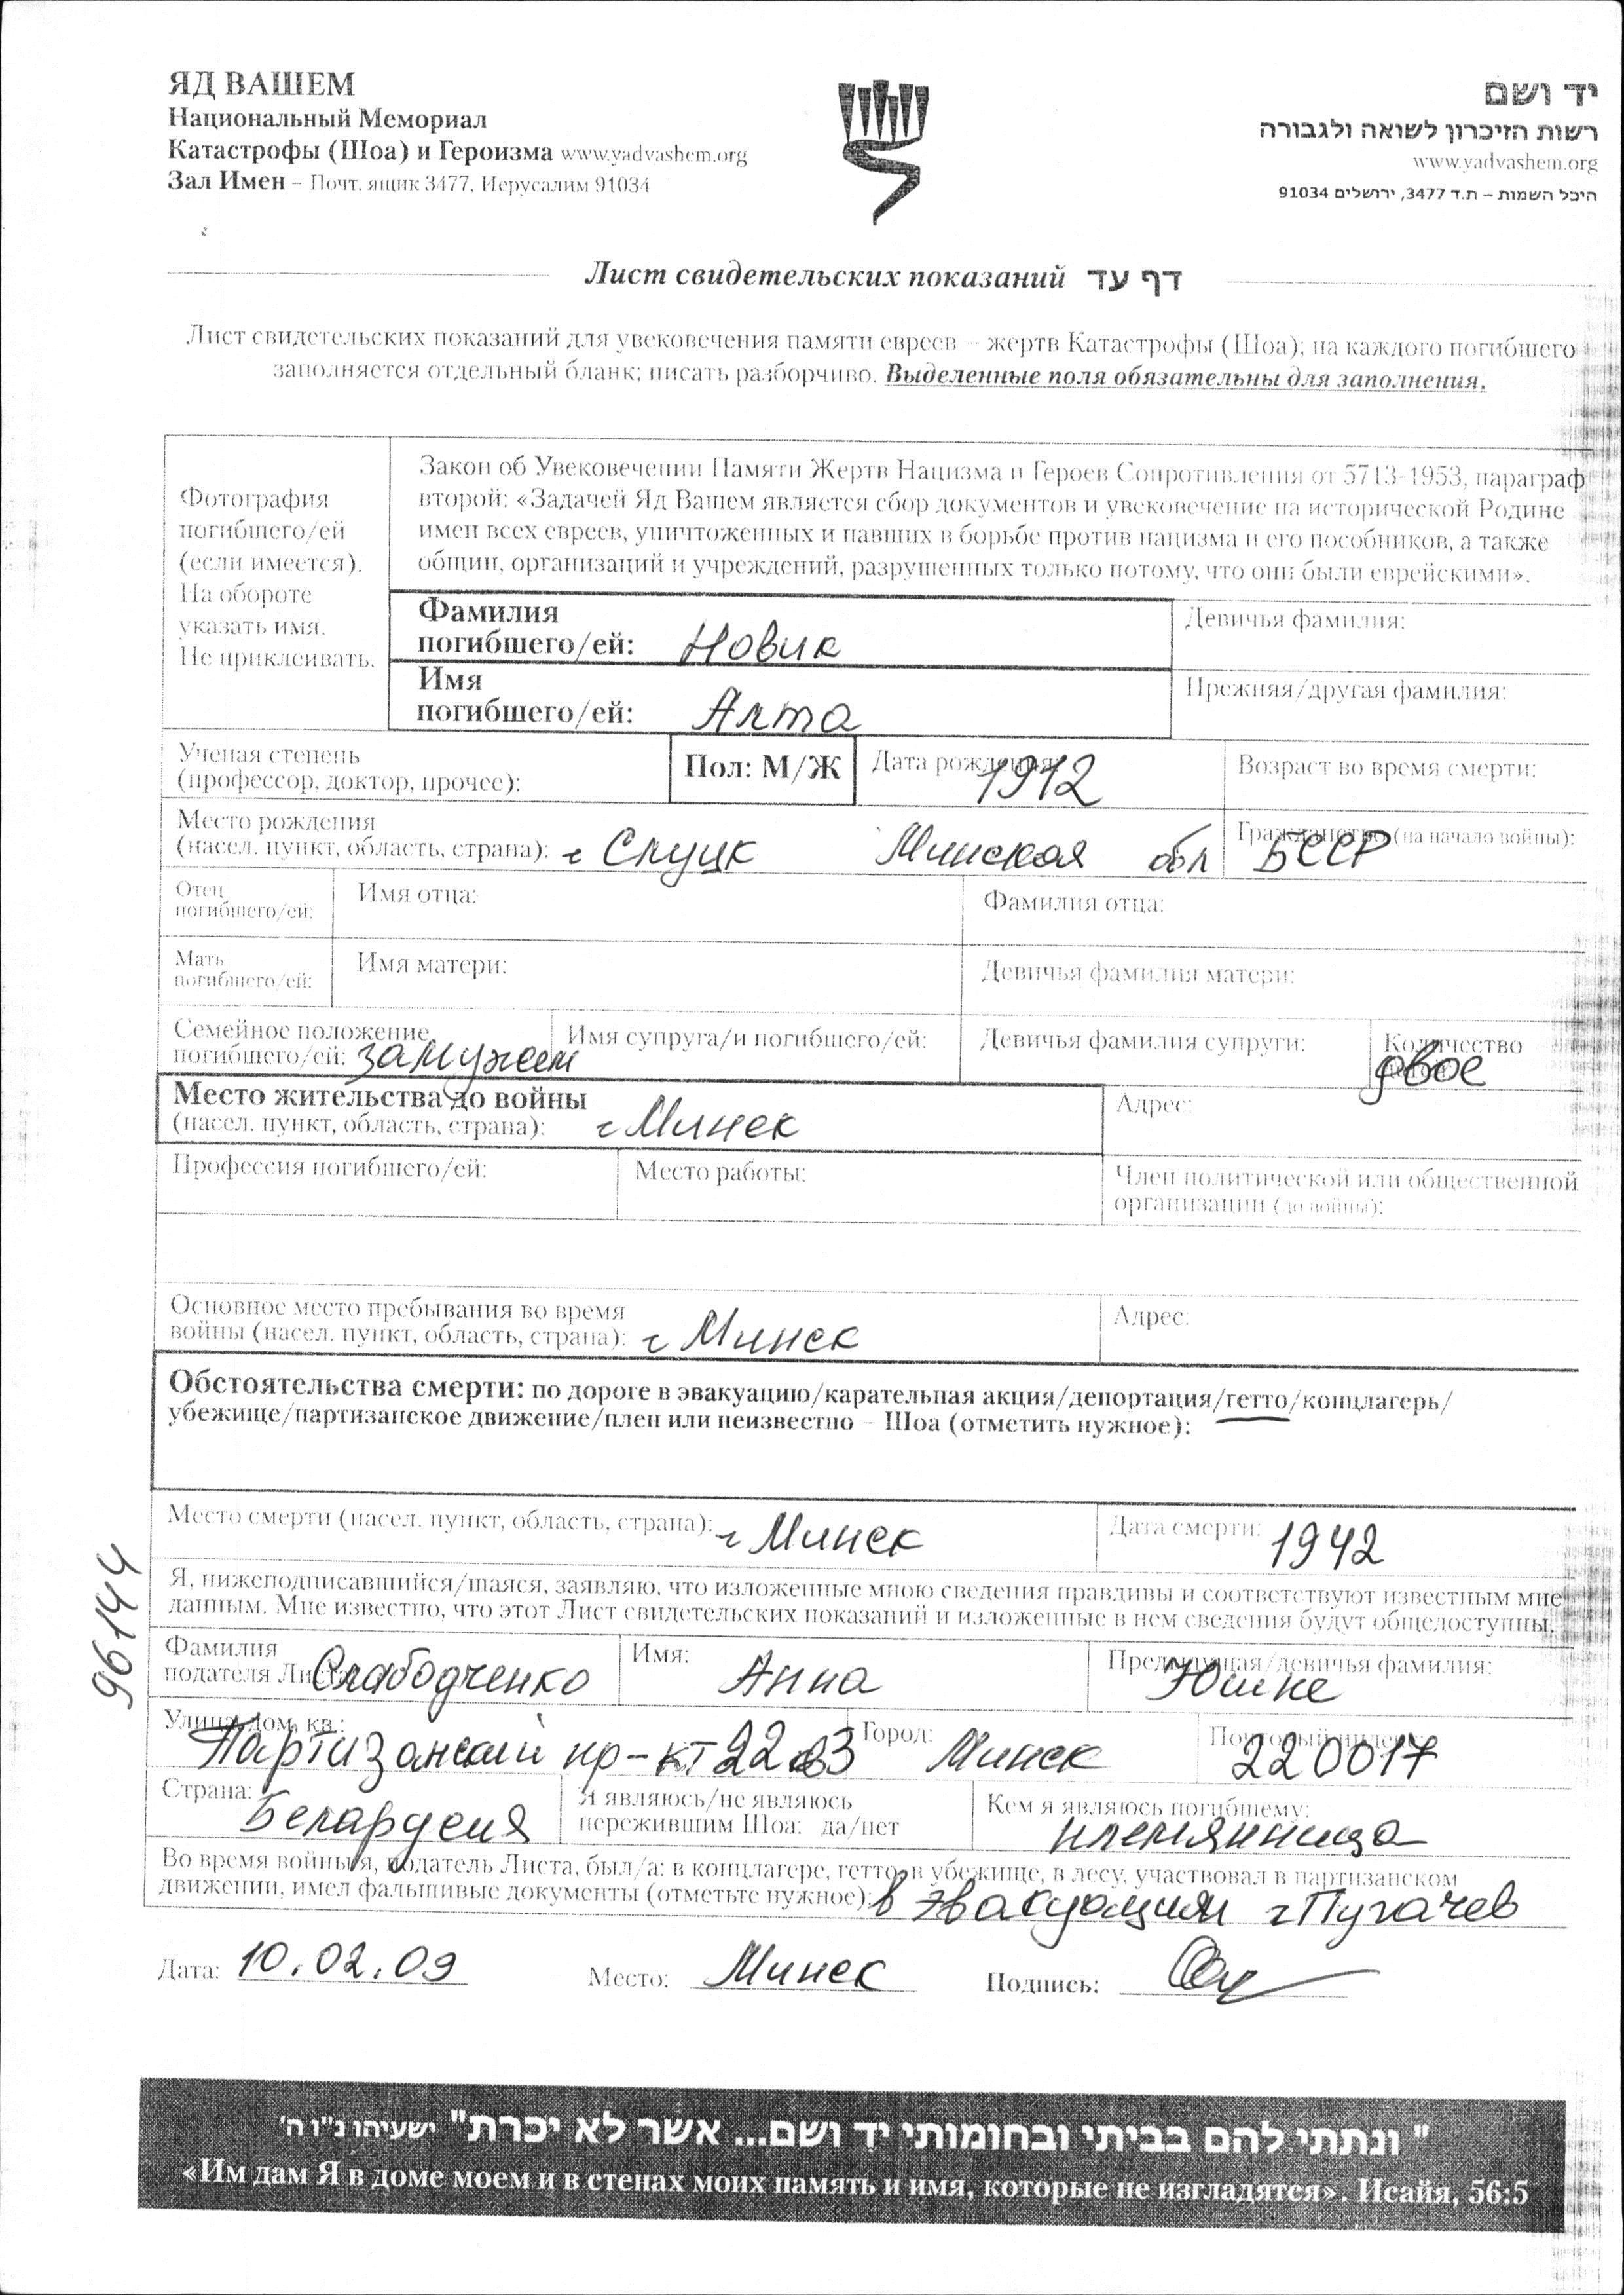 ЯД ВАШЕМ
Национальный Мемориал
Катастрофы (Шоа) и Героизма www.yadvashem.org
Зал Имен – Почт. ящик 3477, Иерусалим 91034
יד ושם
רשות הזיכרון לשואה ולגבורה
www.yadvashem.org
היכל השמות – ת.ד 3477, ירושלים 91034
Лист свидетельских показаний דף עד
Лист свидетельских показаний для увековечения памяти евреев – жертв Катастрофы (Шоа); на каждого погибшего
заполняется отдельный бланк; писать разборчиво. Выделенные поля обязательны для заполнения.
Фотография
погибшего/ей
(если имеется).
На обороте
указать имя.
Не приклеивать.
Закон об Увековечении Памяти Жертв Нацизма и Героев Сопротивления от 5713-1953, параграф
второй: «Задачей Яд Вашем является сбор документов и увековечение на исторической Родине
имен всех евреев, уничтоженных и павших в борьбе против нацизма и его пособников, а также
общин, организаций и учреждений, разрушенных только потому, что они были еврейскими».
Фамилия
погибшего/ей: Новик
Девичья фамилия:
Имя
погибшего/ей: Алта
Прежняя/другая фамилия:
Ученая степень
(профессор, доктор, прочее):
Пол: М/Ж
Дата рождения: 1912
Возраст во время смерти:
Место рождения
(насел. пункт, область, страна): г Слуцк Минская обл БССР
Гражданство (на начало войны):
Отец
погибшего/ей:
Имя отца:
Фамилия отца:
Мать
погибшего/ей:
Имя матери:
Девичья фамилия матери:
Семейное положение
погибшего/ей: замужем
Имя супруга/и погибшего/ей:
Девичья фамилия супруги:
Количество
двое
Место жительства до войны
(насел. пункт, область, страна): г Минск
Адрес:
Профессия погибшего/ей:
Место работы:
Член политической или общественной
организации (до войны):
Основное место пребывания во время
войны (насел. пункт, область, страна): г Минск
Адрес:
Обстоятельства смерти: по дороге в эвакуацию/карательная акция/депортация/гетто/концлагерь/
убежище/партизанское движение/плен или неизвестно – Шоа (отметить нужное):
Место смерти (насел. пункт, область, страна): г Минск
Дата смерти: 1942
Я, нижеподписавшийся/шаяся, заявляю, что изложенные мною сведения правдивы и соответствуют известным мне
данным. Мне известно, что этот Лист свидетельских показаний и изложенные в нем сведения будут общедоступны.
96144
Фамилия
подателя Листа: Слабодченко
Имя: Анна
Предыдущая/девичья фамилия:
Улица, дом, кв.: Партизанский пр-кт
Город: Минск
Почтовый индекс: 220017
Страна: Беларусия
Я являюсь/не являюсь
пережившим Шоа: да/нет
Кем я являюсь погибшему:
племянница
Во время войны я, податель Листа, был/а: в концлагере, гетто, в убежище, в лесу, участвовал в партизанском
движении, имел фальшивые документы (отметьте нужное): в эвакуации г Пугачев
Дата: 10.02.09 Место: Минск Подпись:
" ונתתי להם בביתי ובחומותי יד ושם... אשר לא יכרת" ישעיהו נ"ו ה'
«Им дам Я в доме моем и в стенах моих память и имя, которые не изгладятся». Исайя, 56:5